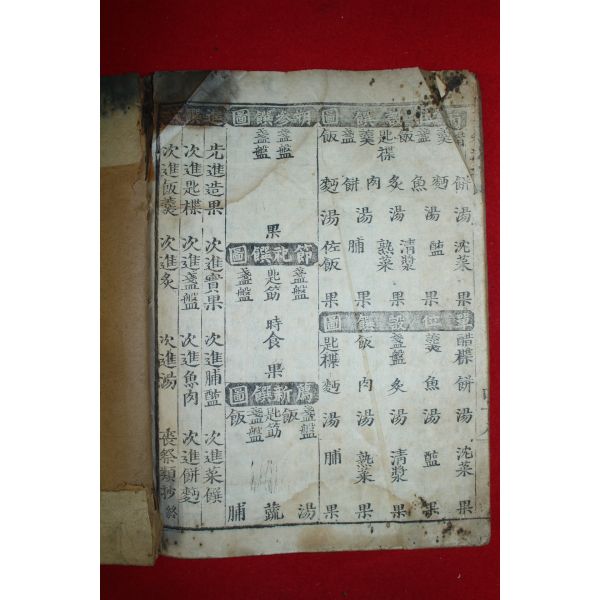 位設饌圖
醋 羹 盞盤 飯 匙楪 羹 盞盤 飯
餅 麵 魚 炙 肉 餅 麵
湯 湯 湯 湯 湯
沈菜 醢 清漿 熟菜 脯 佐飯
果 果 果 果 果 果
單位設饌圖
醋楪 羹 盞盤 飯 匙楪
餅 魚 炙 肉 麵
湯 湯 湯 湯 湯
沈菜 醢 清漿 熟菜 脯
果 果 果 果 果
朔參饌圖
盞盤 盞盤
果
節祀饌圖
盞盤 匙筯 盞盤
時食
果
薦新饌圖
盞盤 飯 匙筯 盞盤 飯
湯 蔬 脯
進饌
先進造果 次進實果 次進脯醢 次進菜饌
次進匙楪 次進盞盤 次進魚肉 次進餅麵
次進飯羹 次進炙 次進湯 喪祭類抄 終